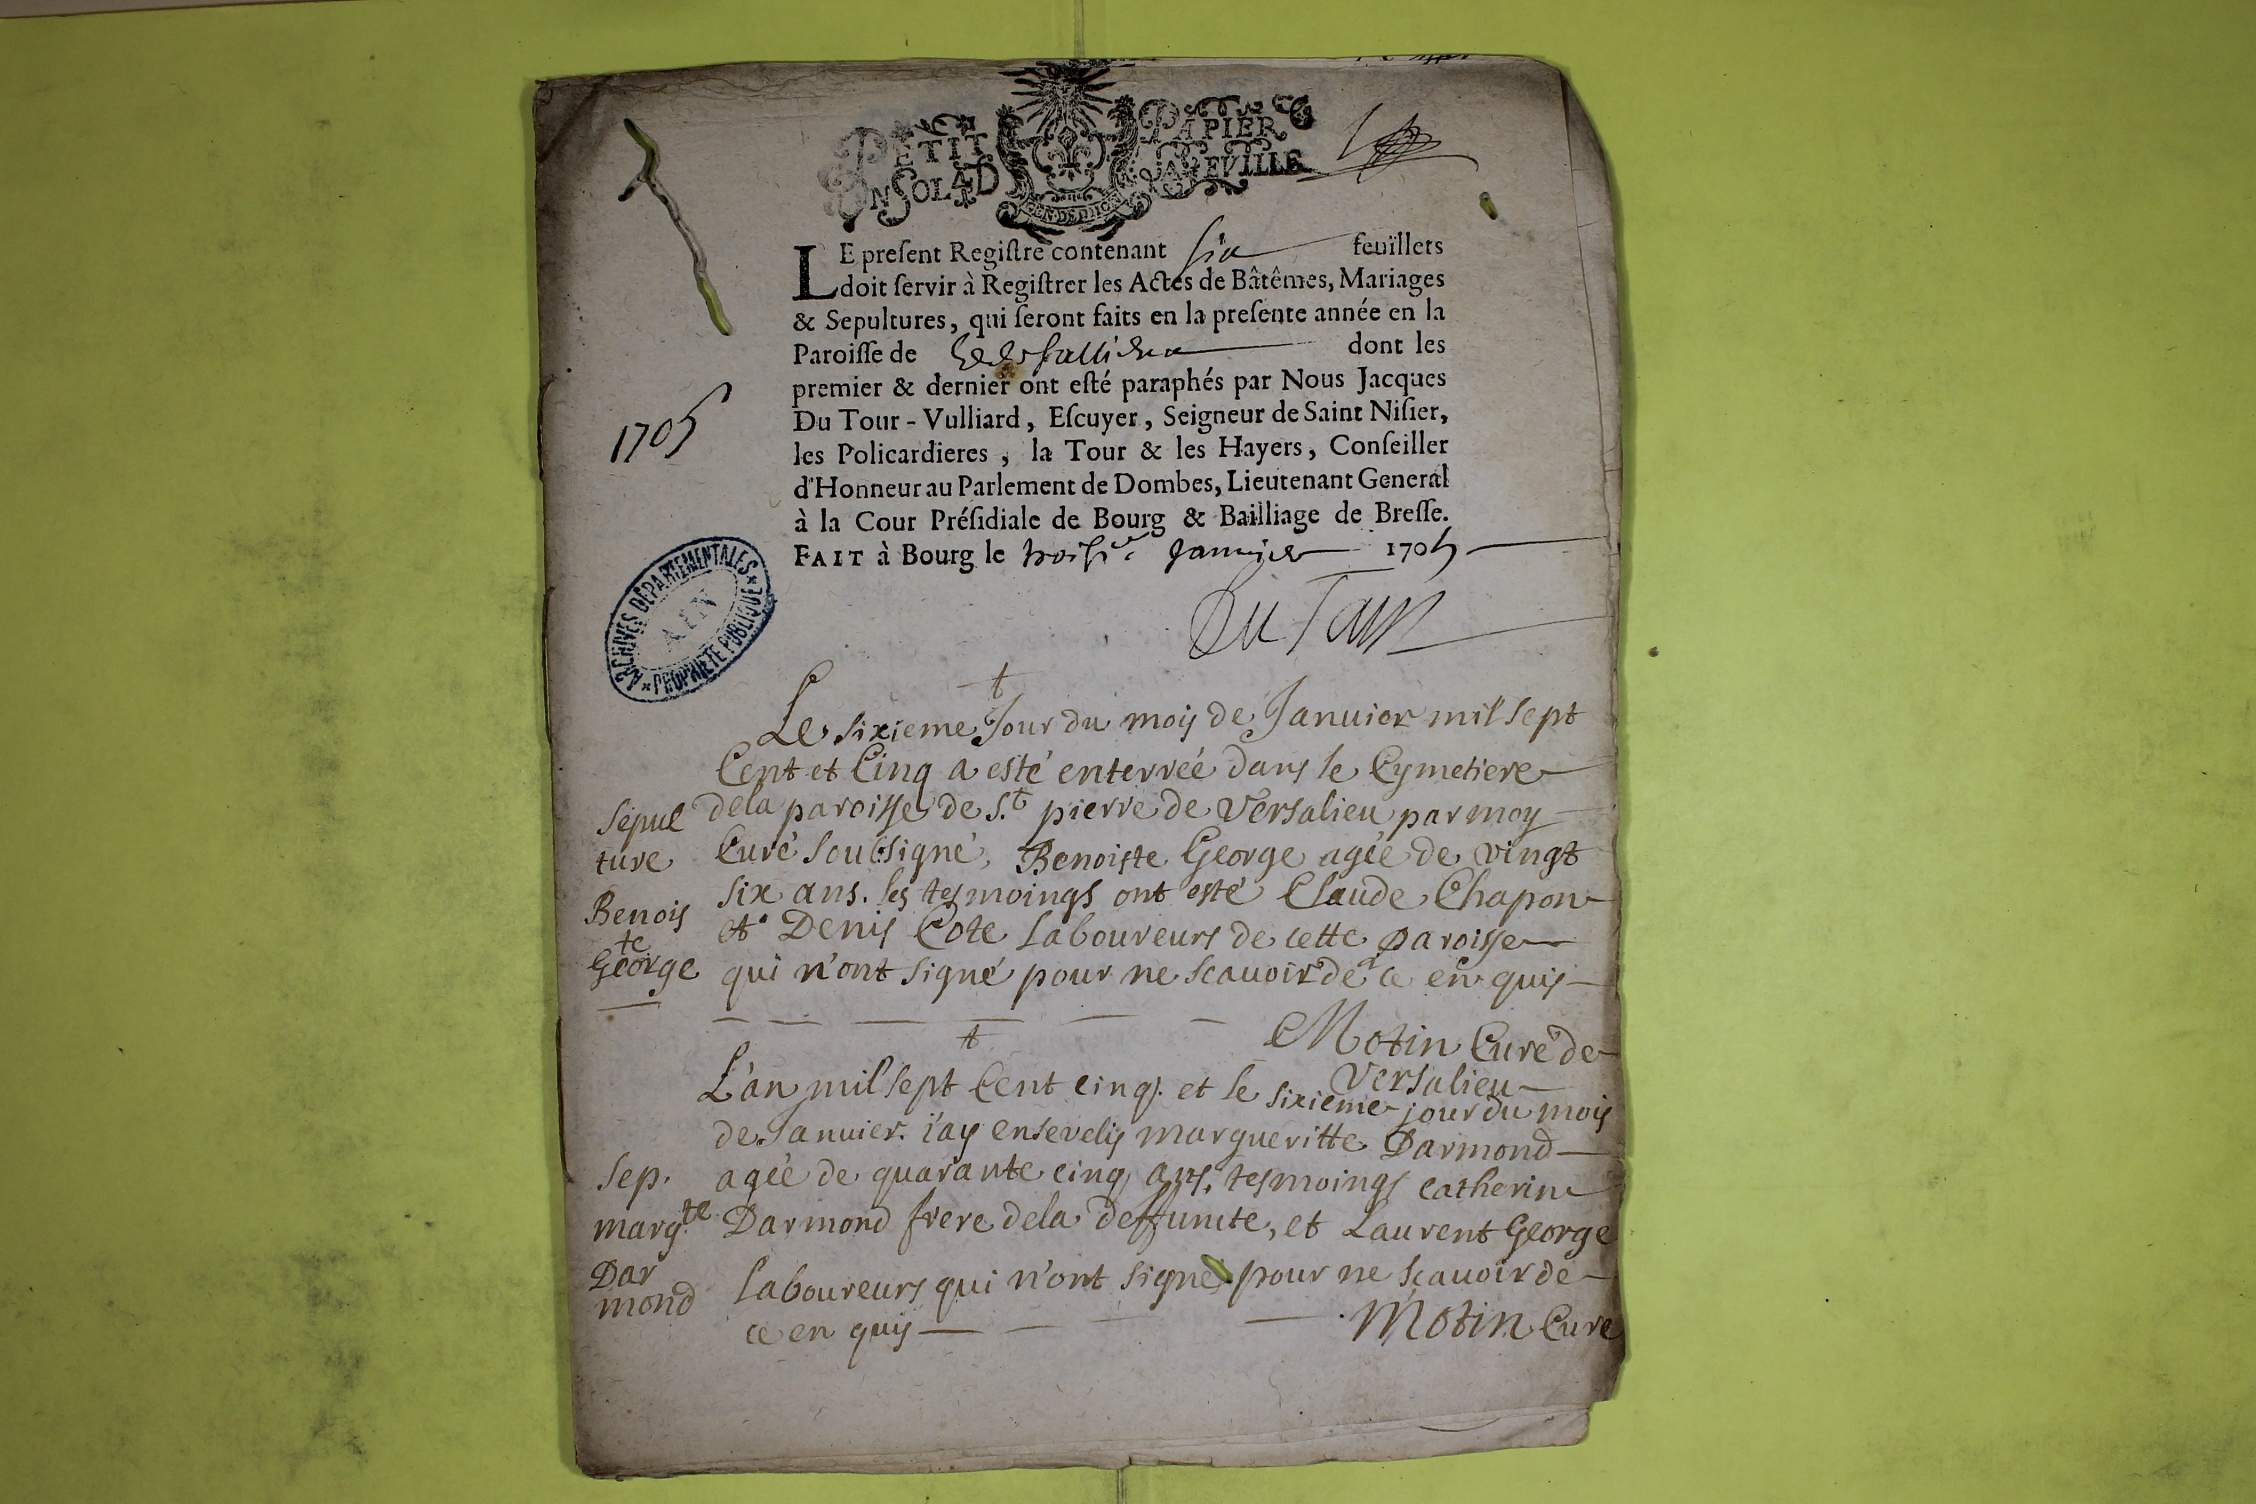 PETIT PAPIER
UN SOL 4 D
GEN. DE DIJON
LE preſent Regiſtre contenant six feüillets
doit ſervir à Regiſtrer les Actes de Bâtêmes, Mariages
& Sepultures, qui ſeront faits en la preſente année en la
Paroiſſe de dont les
premier & dernier ont eſté paraphés par Nous Jacques
Du Tour - Vulliard, Eſcuyer, Seigneur de Saint Niſier,
les Policardieres, la Tour & les Hayers, Conſeiller
d'Honneur au Parlement de Dombes, Lieutenant General
à la Cour Préſidiale de Bourg & Bailliage de Breſſe.
FAIT à Bourg le troisie Janvier 1705
Du Tour
1705
ARCHIVES DÉPARTEMENTALES
AIN
* PROPRIÉTÉ PUBLIQUE *
Le sixieme Jour du mois de Januier mil sept
Cent et Cinq a esté enterreé dans le Cymetiere
dela paroisse de S.t pierre de Versalieu par moy
Curé soubsigné, Benoiste George ageé de vingt
six ans. les tesmoings ont esté Claude Chapon
et Denis Cote laboureurs de cette paroisse
qui n'ont signé pour ne scauoir de ce en quis
Sepul
ture
Benois
te
George
Motin Curé de
Versalieu
L'an mil sept Cent cinq. et le sixieme jour du mois
de Januier. i'ay ensevelis margueritte Darmond
ageé de quarante cinq ans, tesmoings catherin
Darmond frere dela deffuncte, et Laurent George
laboureurs qui n'ont signé pour ne scauoir de
ce en quis
Sep.
marg.te
Dar
mond
Motin Curé